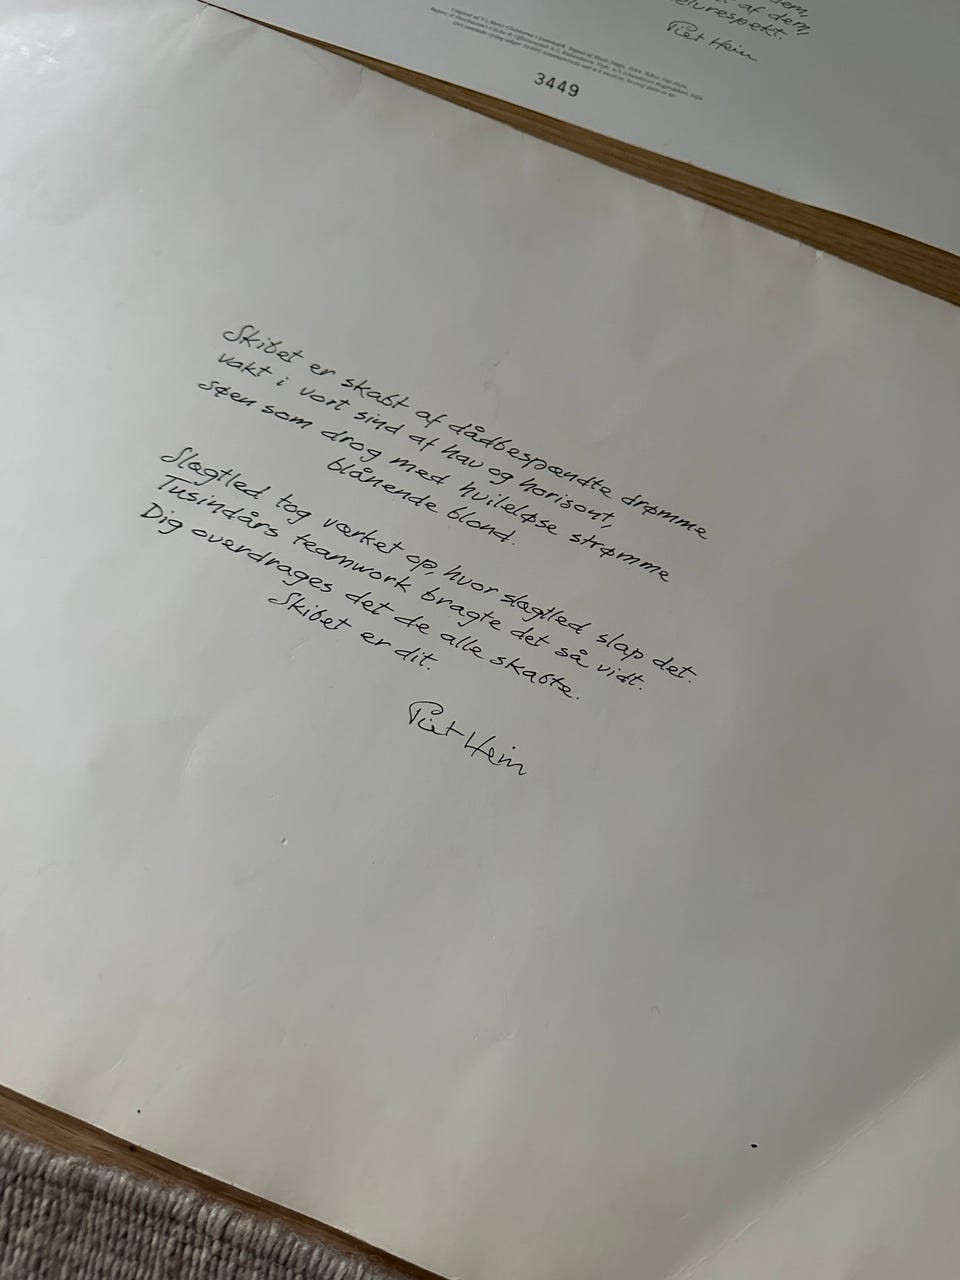 dem,
af dem,
Piet Hein
3449
Skibet er skabt af dådbespændte drømme
vakt i vort sind af hav og horisont,
Søen som drog med hvileløse strømme
blånende blond.
Slægtled tog værket op, hvor slægtled slap det.
Tusindårs teamwork bragte det så vidt.
Dig overdrages det de alle skabte.
Skibet er dit.
Piet Hein